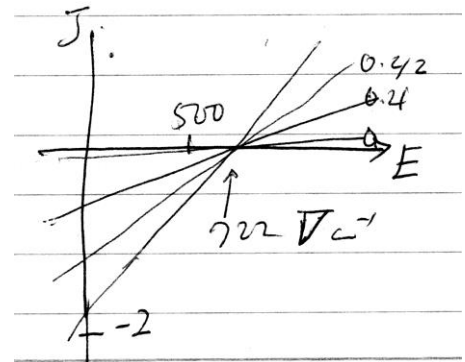 J
0.42
0.4
500
0
E
722 V cm⁻¹
-2